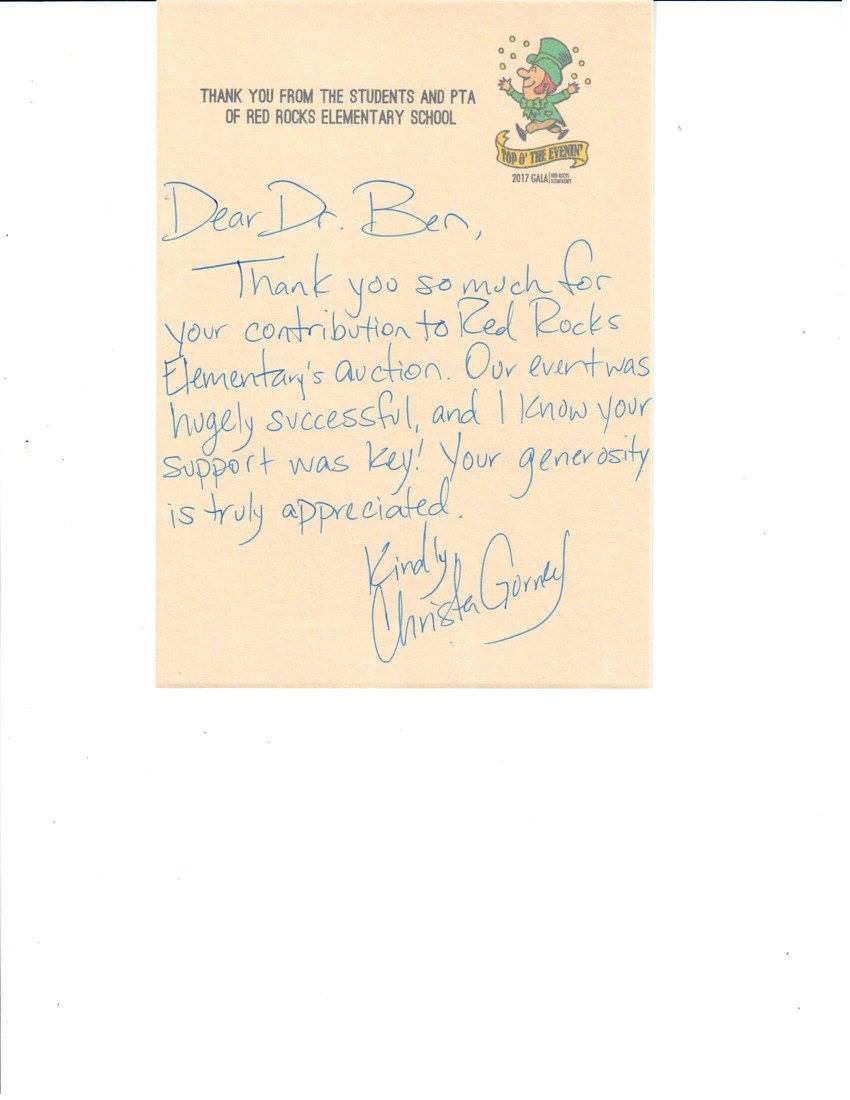 THANK YOU FROM THE STUDENTS AND PTA
OF RED ROCKS ELEMENTARY SCHOOL
TOP O' THE EVENIN'
2017 GALA | RED ROCKS
ELEMENTARY
Dear Dr. Ben,
Thank you so much for
your contribution to Red Rocks
Elementary's auction. Our event was
hugely successful, and I know your
support was key! Your generosity
is truly appreciated.
Kindly,
Christa Gorney